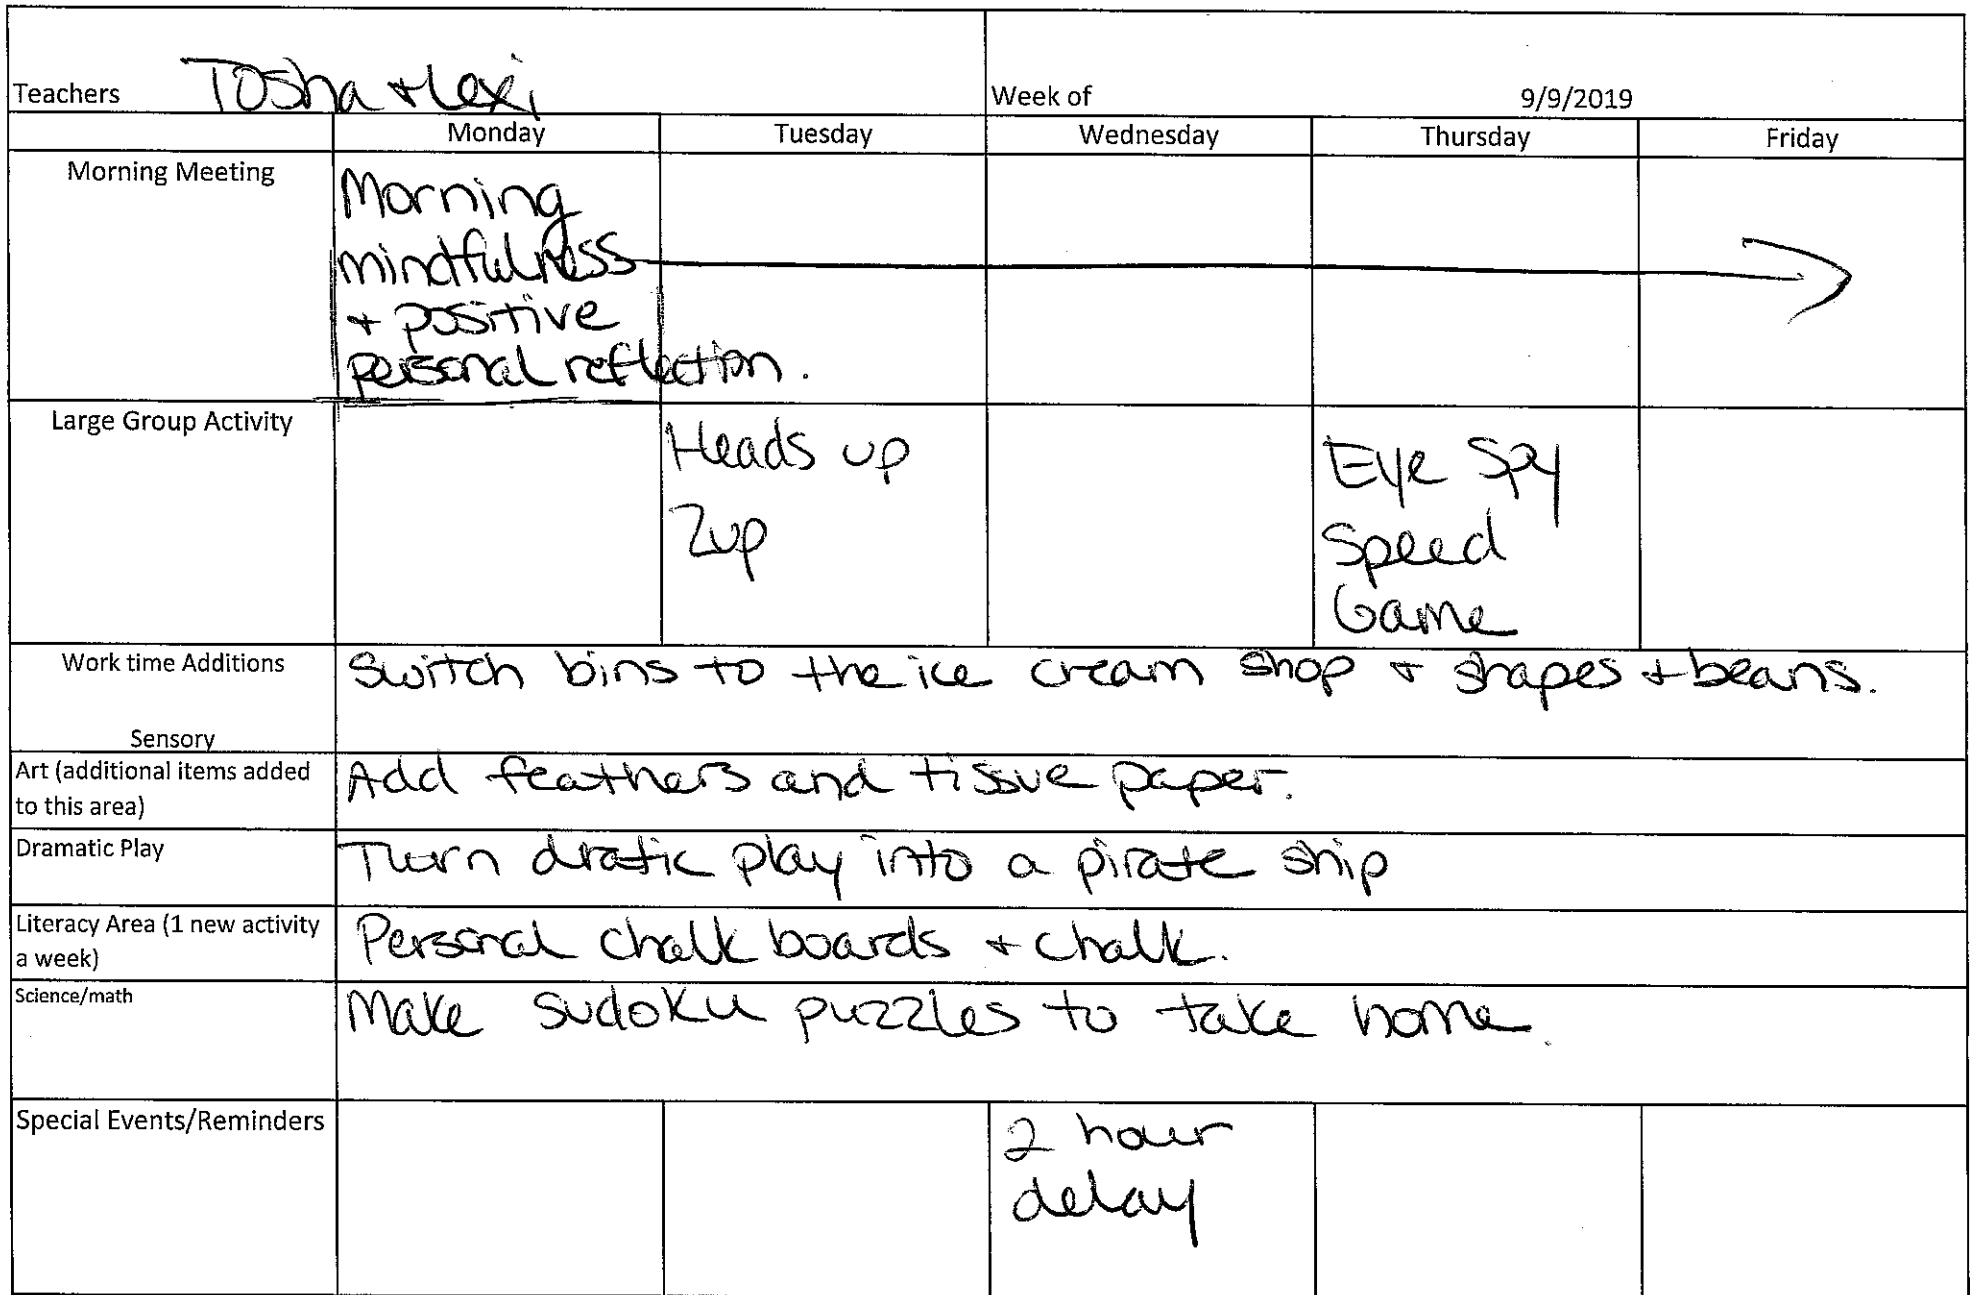 Teachers Tosha + Lexi Week of 9/9/2019
Monday Tuesday Wednesday Thursday Friday
Morning Meeting
Morning
mindfulness
+ positive
personal reflection.
Large Group Activity
Heads up
7up
Eye Spy
Speed
Game
Work time Additions
Sensory
Switch bins to the ice cream shop + shapes + beans.
Art (additional items added
to this area)
Add feathers and tissue paper.
Dramatic Play
Turn dratic play into a pirate ship
Literacy Area (1 new activity
a week)
Personal chalk boards + chalk.
Science/math
Make sudoku puzzles to take home.
Special Events/Reminders
2 hour
delay